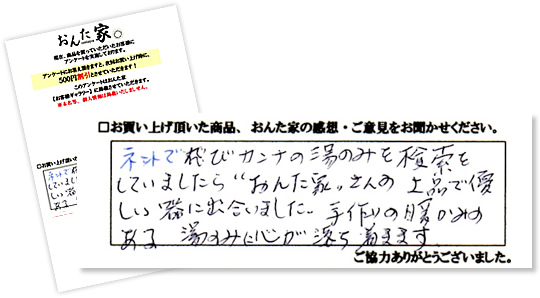 おんた家。
現在、商品を買っていただいたお客様に
アンケートを実施しております。
アンケートにお答え頂きますと、次回お買い上げ時に、
500円割引とさせていただきます!
このアンケートはおんた家
【お客様ギャラリー】に掲載させていただきます。
□お買い上げ頂いた
□お買い上げ頂いた商品、おんた家の感想・ご意見をお聞かせください。
ネットで飛びカンナの湯のみを検索を
していましたら“おんた家”さんの上品で優
しい器に出合いました。手作りの暖かみの
ある 湯のみに心が落ち着きます
ご協力ありがとうございました。